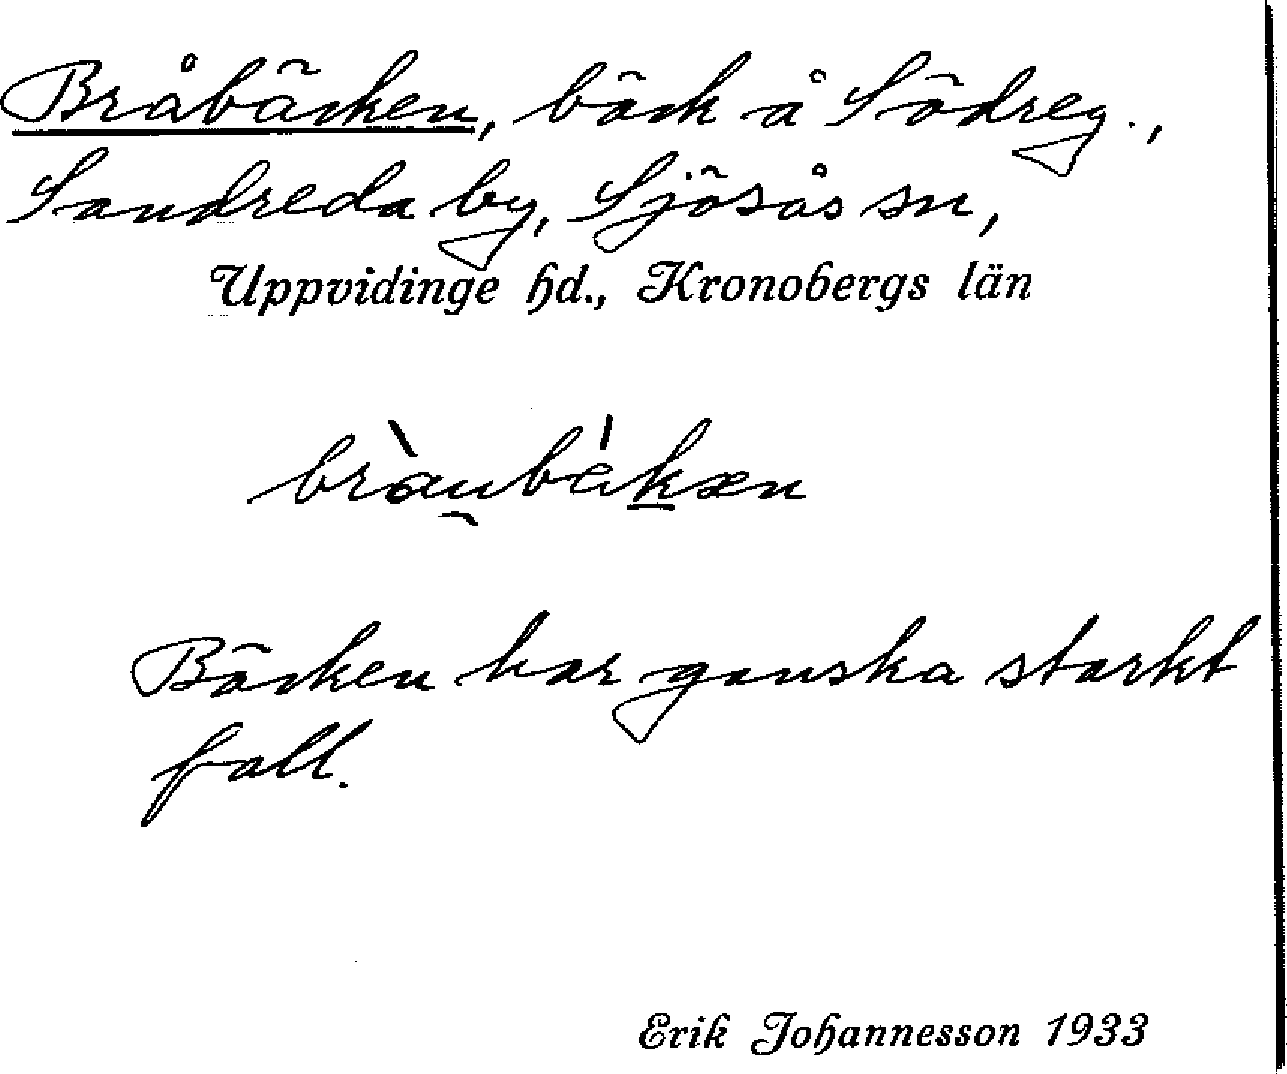 Bråbäcken, bäck å Södreg.,
Sandreda by, Sjösås sn,
Uppvidinge hd., Kronobergs län
bràu̯bákæn
Bäcken har ganska starkt
fall.
Erik Johannesson 1933